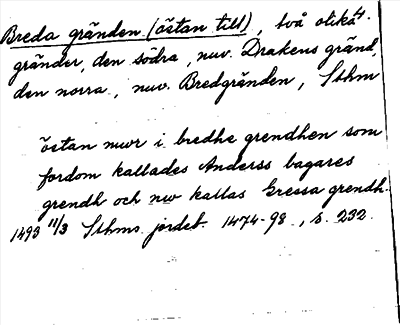 Breda gränden (östan till), två olika
gränder, den södra, nuv. Drakens gränd,
den norra, nuv. Bredgränden, Sthm
östan mwr i bredhe grendhen som
fordom kallades Anderss bagares
grendh och nw kallas Gressa grendh.
1493 11/3 Sthms jordeb. 1474-98, s. 232.